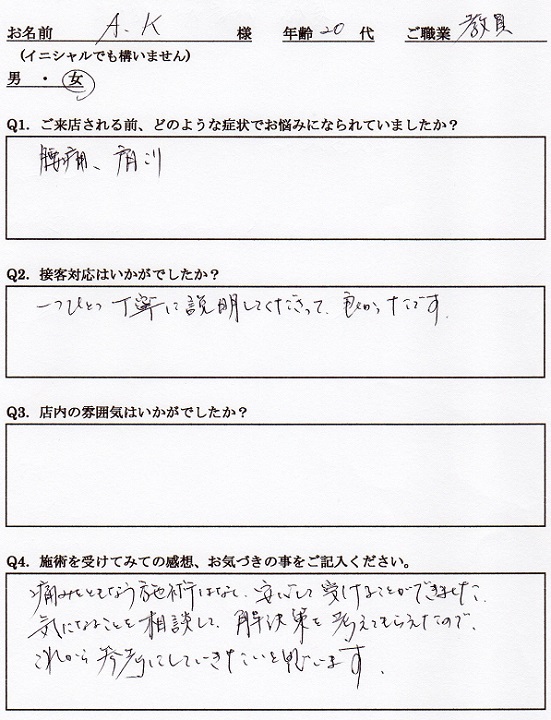 お名前 A.K 様 年齢 20 代 ご職業 教員
(イニシャルでも構いません)
男 ・ 女
Q1. ご来店される前、どのような症状でお悩みになられていましたか？
腰痛、肩こり
Q2. 接客対応はいかがでしたか？
一つひとつ丁寧に説明してくださって、良かったです。
Q3. 店内の雰囲気はいかがでしたか？
Q4. 施術を受けてみての感想、お気づきの事をご記入ください。
痛みをともなう施術はなく、安心して受けることができました。
気になることを相談して、解決策を考えてもらえたので、
これから参考にしていきたいと思います。